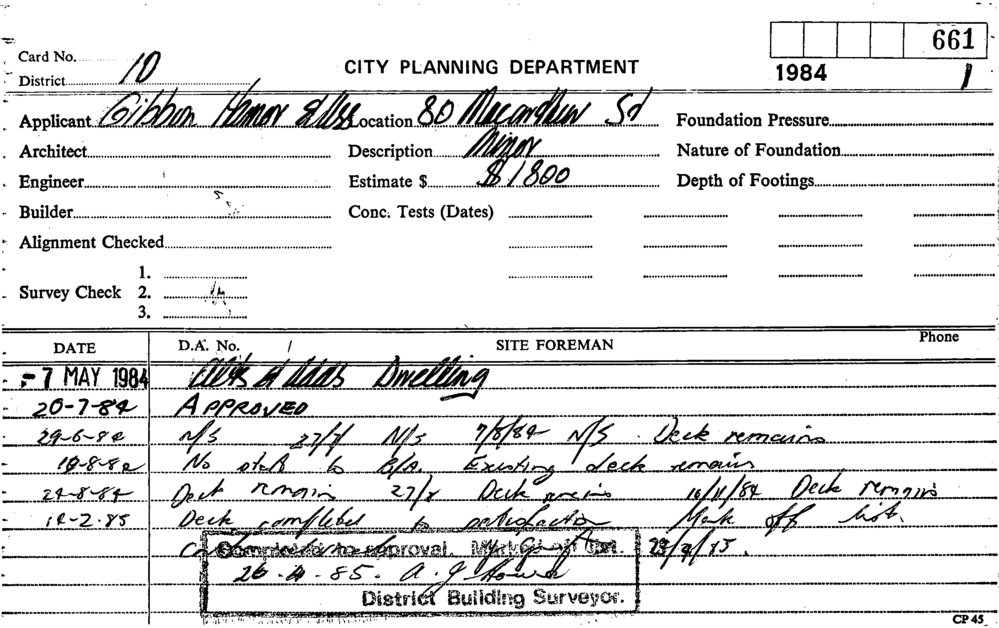 661
Card No.
CITY PLANNING DEPARTMENT
1984 1
District 10
Applicant Gibbon Homor Location 80 Macandrew Foundation Pressure
Architect Description Minor Nature of Foundation
Engineer Estimate $ $1800 Depth of Footings
Builder Conc. Tests (Dates)
Alignment Checked
1.
Survey Check 2.
3.
DATE D.A. No. / SITE FOREMAN Phone
-7 MAY 1984 Alts & Adds Dwelling
20-7-84 APPROVED
29-6-84 N/S 27/7 N/S 7/8/84 N/S. Deck remains
10-8-84 No start to B/A. Existing deck remains
24-8-84 Deck remains 27/8 Deck remains 16/11/84 Deck remains
14-2-85 Deck completed to satisfaction Mark off list.
Completed to approval. Marked off list.
26-4-85. A. J
District Building Surveyor.
CP 45